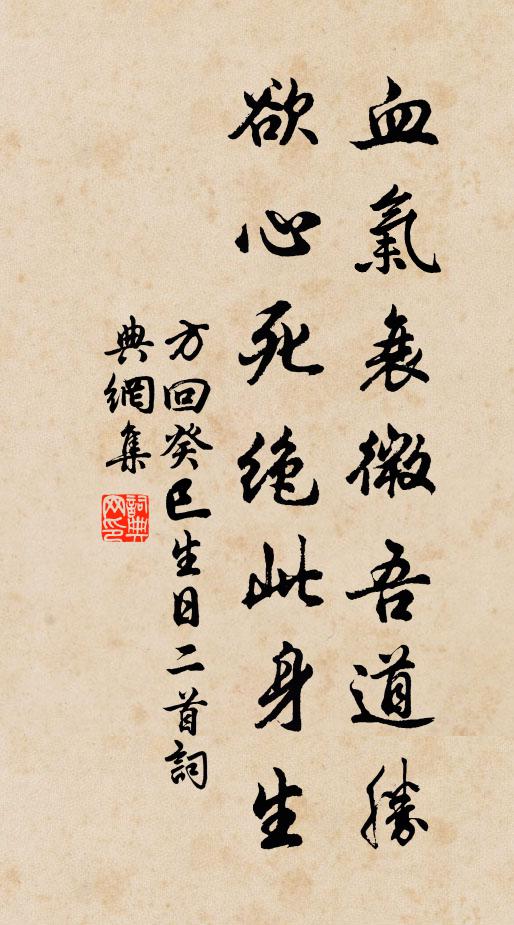 血氣衰微吾道勝
欲心死絶此身生
方回癸巳生日二首詞
典網集
詞典
网印